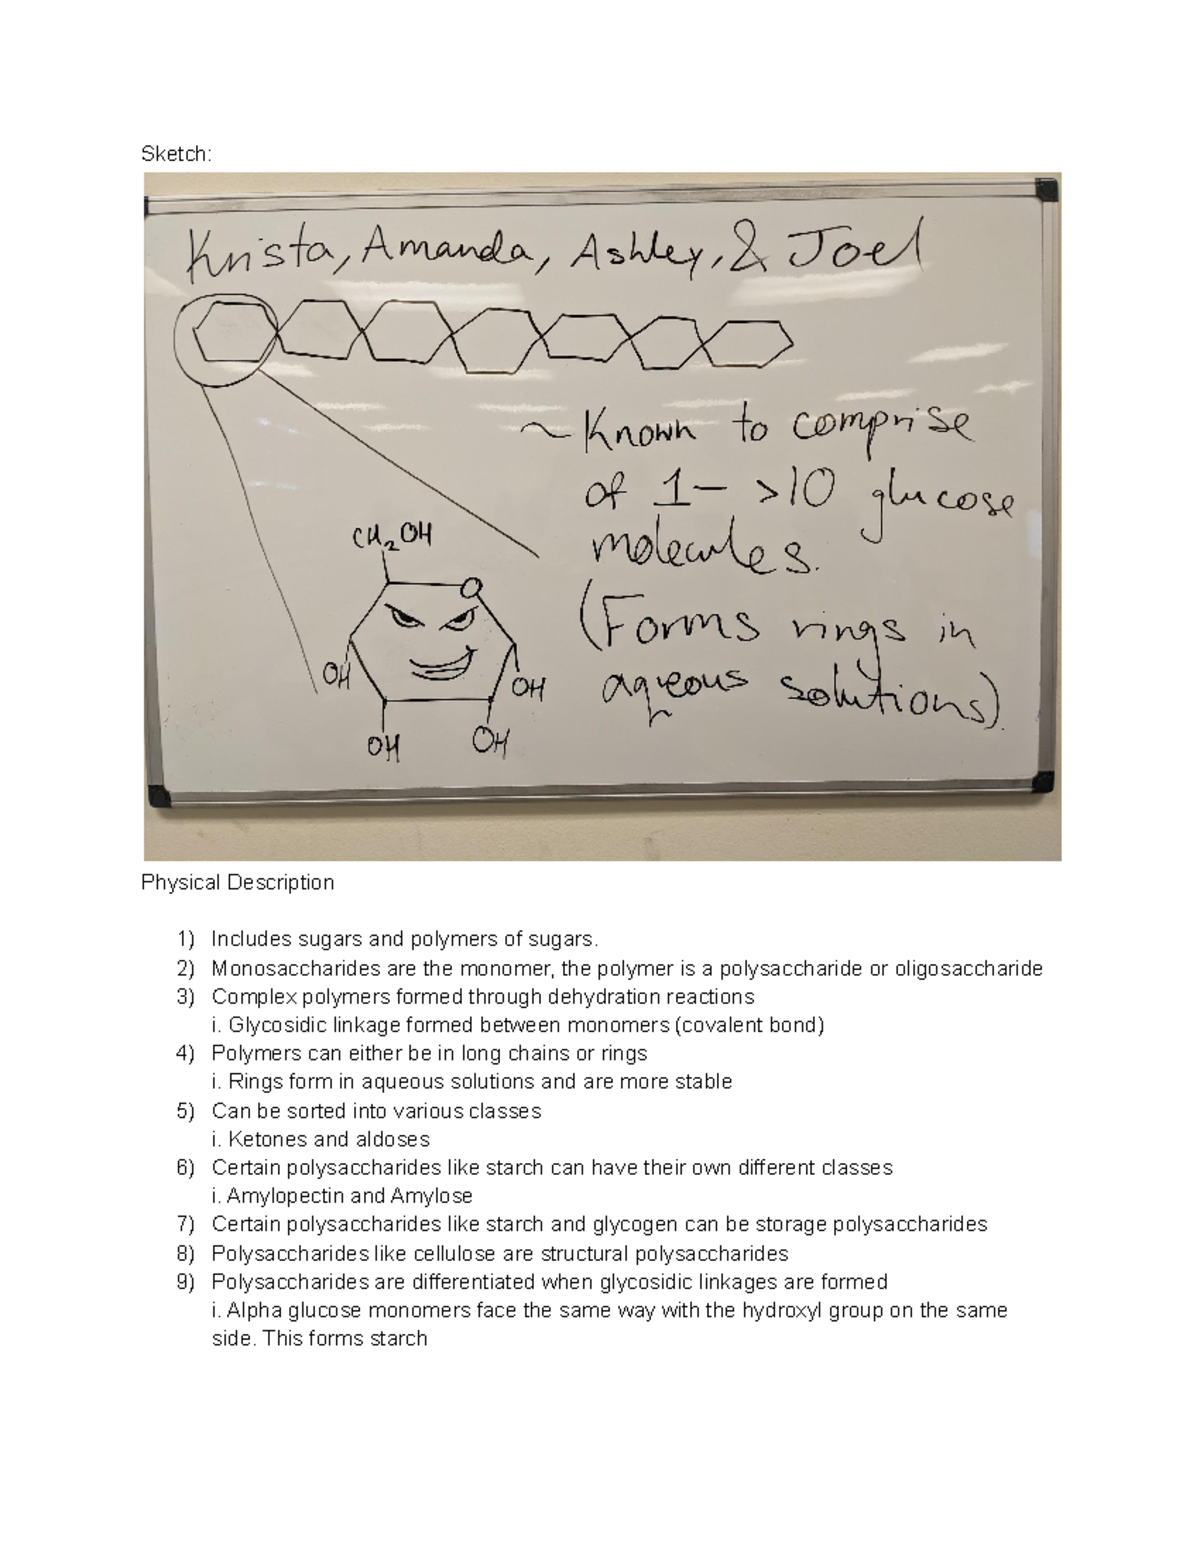 Sketch:
Krista, Amanda, Ashley, & Joel
~ Known to comprise
of 1- >10 glucose
molecules.
(Forms rings in
aqueous solutions).
CH2OH
O
OH
OH
OH
OH
Physical Description
1) Includes sugars and polymers of sugars.
2) Monosaccharides are the monomer, the polymer is a polysaccharide or oligosaccharide
3) Complex polymers formed through dehydration reactions
i. Glycosidic linkage formed between monomers (covalent bond)
4) Polymers can either be in long chains or rings
i. Rings form in aqueous solutions and are more stable
5) Can be sorted into various classes
i. Ketones and aldoses
6) Certain polysaccharides like starch can have their own different classes
i. Amylopectin and Amylose
7) Certain polysaccharides like starch and glycogen can be storage polysaccharides
8) Polysaccharides like cellulose are structural polysaccharides
9) Polysaccharides are differentiated when glycosidic linkages are formed
i. Alpha glucose monomers face the same way with the hydroxyl group on the same
side. This forms starch